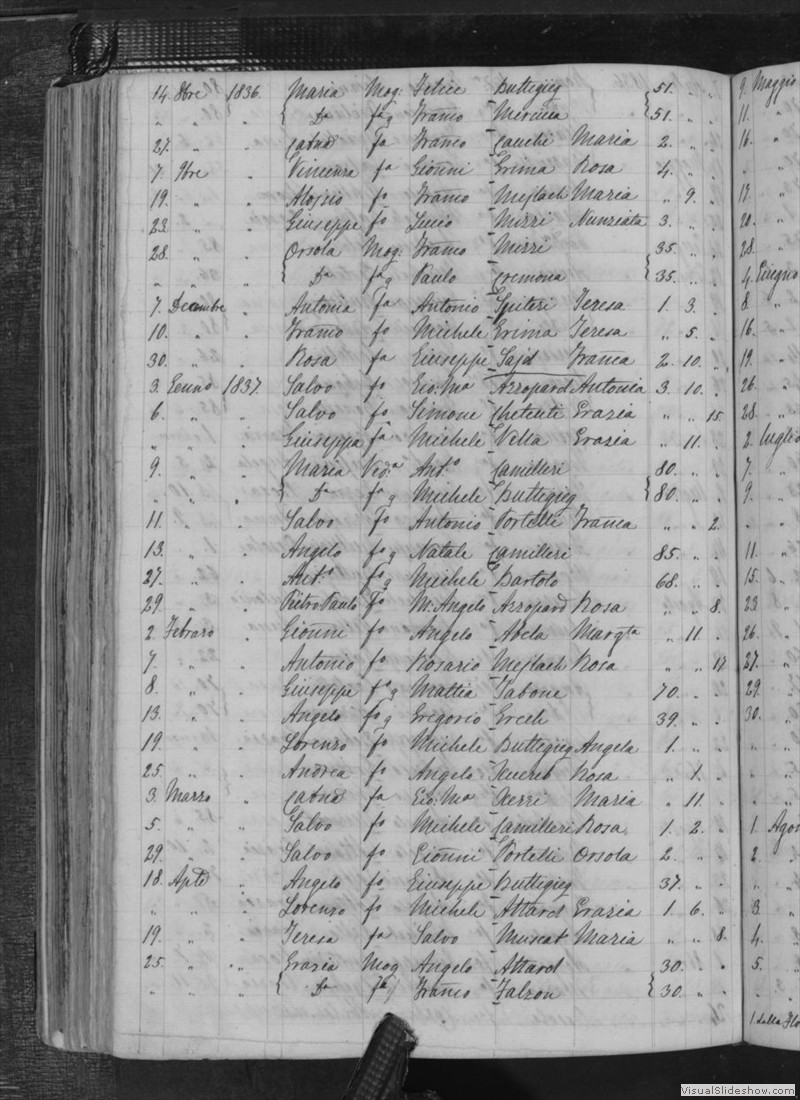 14. 8bre 1836. Maria Mog: Felice Buttigieg 51. " "
" " " Da fa q Franco Mercieca 51. " "
27. " " Catna Fa Franco Cauchi Maria 2. " "
7. 9bre " Vincenza fa Gionni Grima Rosa 4. " "
19. " " Aloisio fo Franco Mejlach Maria " 9. "
23. " " Giuseppe fo Lucio Mizzi Nunziata 3. " "
28. " " Orsola Mog: Franco Mizzi 35. " "
" " " Da fa q Paulo Cremona 35. " "
7. Decembre " Antonia Fa Antonio Spiteri Teresa 1. 3. "
10. " " Franco fo Michele Grima Teresa " 5. "
30. " " Rosa fa Giuseppe Sajd Franca 2. 10. "
3. Genno 1837. Salvo fo Gio: Ma Azzopard Antonia 3. 10. "
6. " " Salvo fo Simone Chetcuti Grazia " " 15.
" " " Giuseppa fa Michele Vella Grazia " 11. "
9. " " Maria Veda Anto Camilleri 80. " "
" " " Da fa q Michele Buttigieg 80. " "
11. " " Salvo Fo Antonio Portelli Franca " " 2.
13. " " Angelo fo q Natale Camilleri 85. " "
27. " " Anto fo q Michele Bartolo 68. " "
29. " " Pietro Paulo Fo M: Angelo Azzopard Rosa " " 8.
2. Febraro " Gionni fo Angelo Abela Margta " 11. "
7. " " Antonio fo Rosario Mejlach Rosa " "
8. " " Giuseppe fo q Mattia Tabone 70. " "
13. " " Angelo fo q Gregorio Grech 39. " "
19. " " Lorenzo fo Michele Buttigieg Angela 1. " "
25. " " Andrea fo Angelo Xuereb Rosa " 1. "
3. Marzo " Catna fa Gio: Ma Xerri Maria " 11. "
5. " " Salvo fo Michele Camilleri Rosa 1. 2. "
29. " " Salvo fo Gionni Portelli Orsola 2. " "
18. Aple " Angelo fo Giuseppe Buttigieg 37. " "
" " " Lorenzo fo Michele Attard Grazia 1. 6. "
19. " " Teresa fa Salvo Muscat Maria " " 8.
25. " " Grazia Mog Angelo Attard 30. " "
" " " Da fa q Franco Falzon 30. " "
9. Maggio
11. "
16. "
" "
17. "
20. "
28. "
4. Giugno
8. "
16. "
19. "
26. "
28. "
2. Luglio
7. "
9. "
" "
11. "
15. "
23 "
26. "
27. "
29. "
30. "
1. Agos
2. "
3. "
4. "
5. "
VisualSlideshow.com